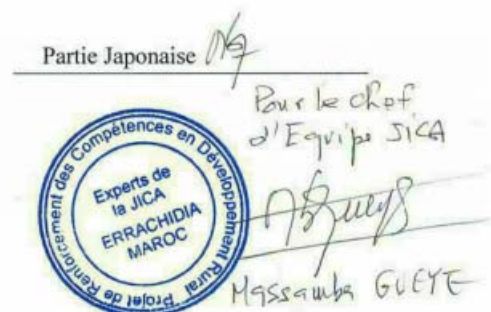 Partie Japonaise
Pour le chef
d'Equipe JICA
Projet de Renforcement des Compétences en Développement Rural
Experts de
la JICA
ERRACHIDIA
MAROC
Massamba GUEYE